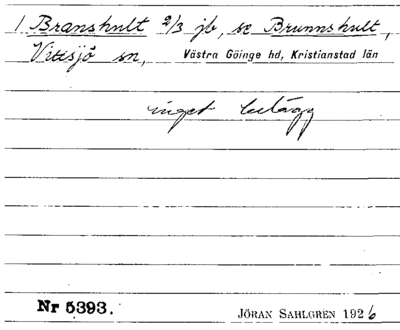 1 Branshult 2/3 jb, se Brunnshult,
Vittsjö sn, Västra Göinge hd, Kristianstad län
inget belägg
Nr 5393. JÖRAN SAHLGREN 1926